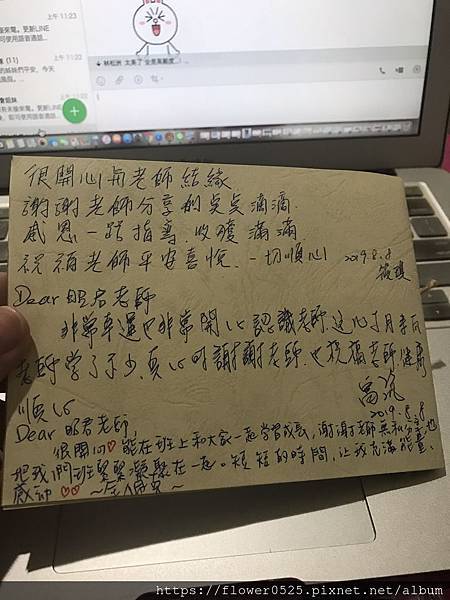 上午11:23
(11)
上午11:22
很開心與老師結緣
謝謝老師分享的點點滴滴.
感恩一路指導 收穫滿滿
祝福老師平安喜悅.一切順心 2019.8.8
Dear 昭君老師
非常幸運也非常開心認識老師.這心
老師學了不少,真心的謝謝老師.也祝福老師健康
順心
2019.8.8
Dear 昭君老師
很開心♡能在班上和大家一起學習成長,謝謝老師無私分享,也
把我們班緊緊凝聚在一起。短短的時間,讓我充滿能量、
感動♡♡
https://flower0525.pixnet.net/album